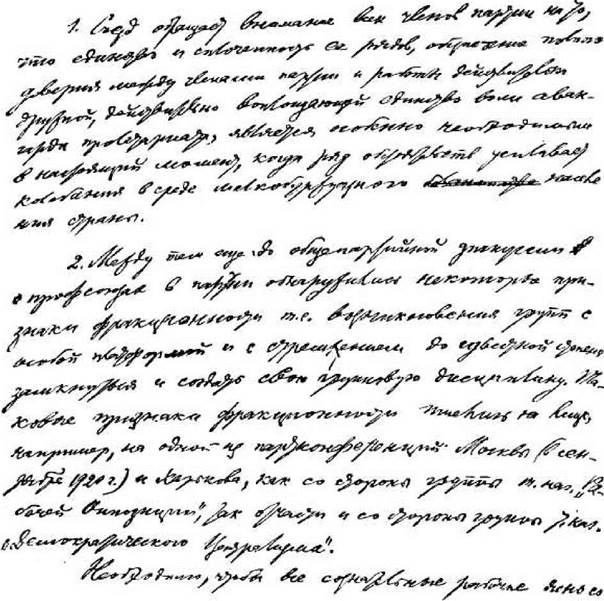 1. Съезд обращает внимание всех членов партии на то,
что единство и сплоченность ее рядов, обеспечение полного
доверия между членами партии и работы действительно
дружной, действительно воплощающей единство воли аван-
гарда пролетариата, является особенно необходимым
в настоящий момент, когда ряд обстоятельств усиливает
колебания в среде мелкобуржуазного населе
ния страны.
2. Между тем еще до общепартийной дискуссии
о профсоюзах в партии обнаружились некоторые при-
знаки фракционности т.е. возникновения групп с
особой платформой и с стремлением до известной степени
замкнуться и создать свою групповую дисциплину. Та-
ковые признаки фракционности имелись на лицо,
например, на одной из партконференций Москвы (в сен-
тябре 1920 г.) и Харькова, как со стороны группы т. наз. „Ра-
бочей Оппозиции", так отчасти и со стороны группы т. наз.
„Демократического Централизма".
Необходимо, чтобы все сознательные рабочие ясно со